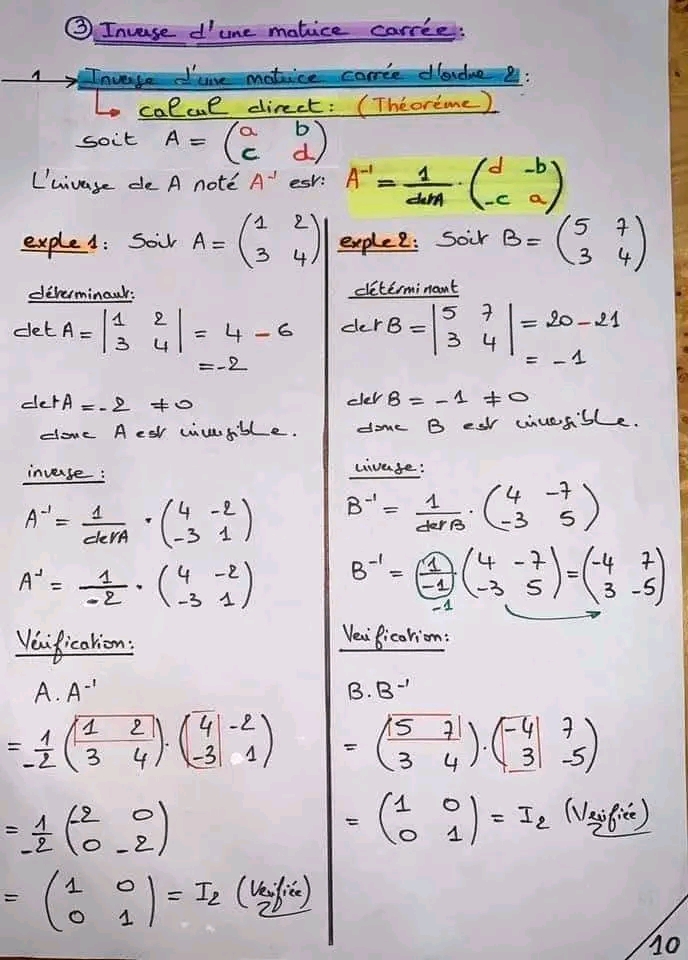 ③ Inverse d'une matrice carrée:
1 → Inverse d'une matrice carrée d'ordre 2:
↳ calcul direct: (Théoréme)
soit A = (a b; c d)
L'inverse de A noté A⁻¹ est: A⁻¹ = 1/detA · (d -b; -c a)
exple 1: Soit A = (1 2; 3 4)
déterminant:
det A = |1 2; 3 4| = 4 - 6
= -2
det A = -2 ≠ 0
donc A est inversible.
inverse:
A⁻¹ = 1/detA · (4 -2; -3 1)
A⁻¹ = 1/-2 · (4 -2; -3 1)
Vérification:
A . A⁻¹
= 1/-2 (1 2; 3 4) · (4 -2; -3 1)
= 1/-2 (-2 0; 0 -2)
= (1 0; 0 1) = I₂ (Verifiée)
exple 2: Soit B = (5 7; 3 4)
détérminant
det B = |5 7; 3 4| = 20 - 21
= -1
det B = -1 ≠ 0
donc B est inversible.
inverse:
B⁻¹ = 1/detB · (4 -7; -3 5)
B⁻¹ = 1/-1 (4 -7; -3 5) = (-4 7; 3 -5)
-1
Verification:
B . B⁻¹
= (5 7; 3 4) · (-4 7; 3 -5)
= (1 0; 0 1) = I₂ (Verifiée)
10